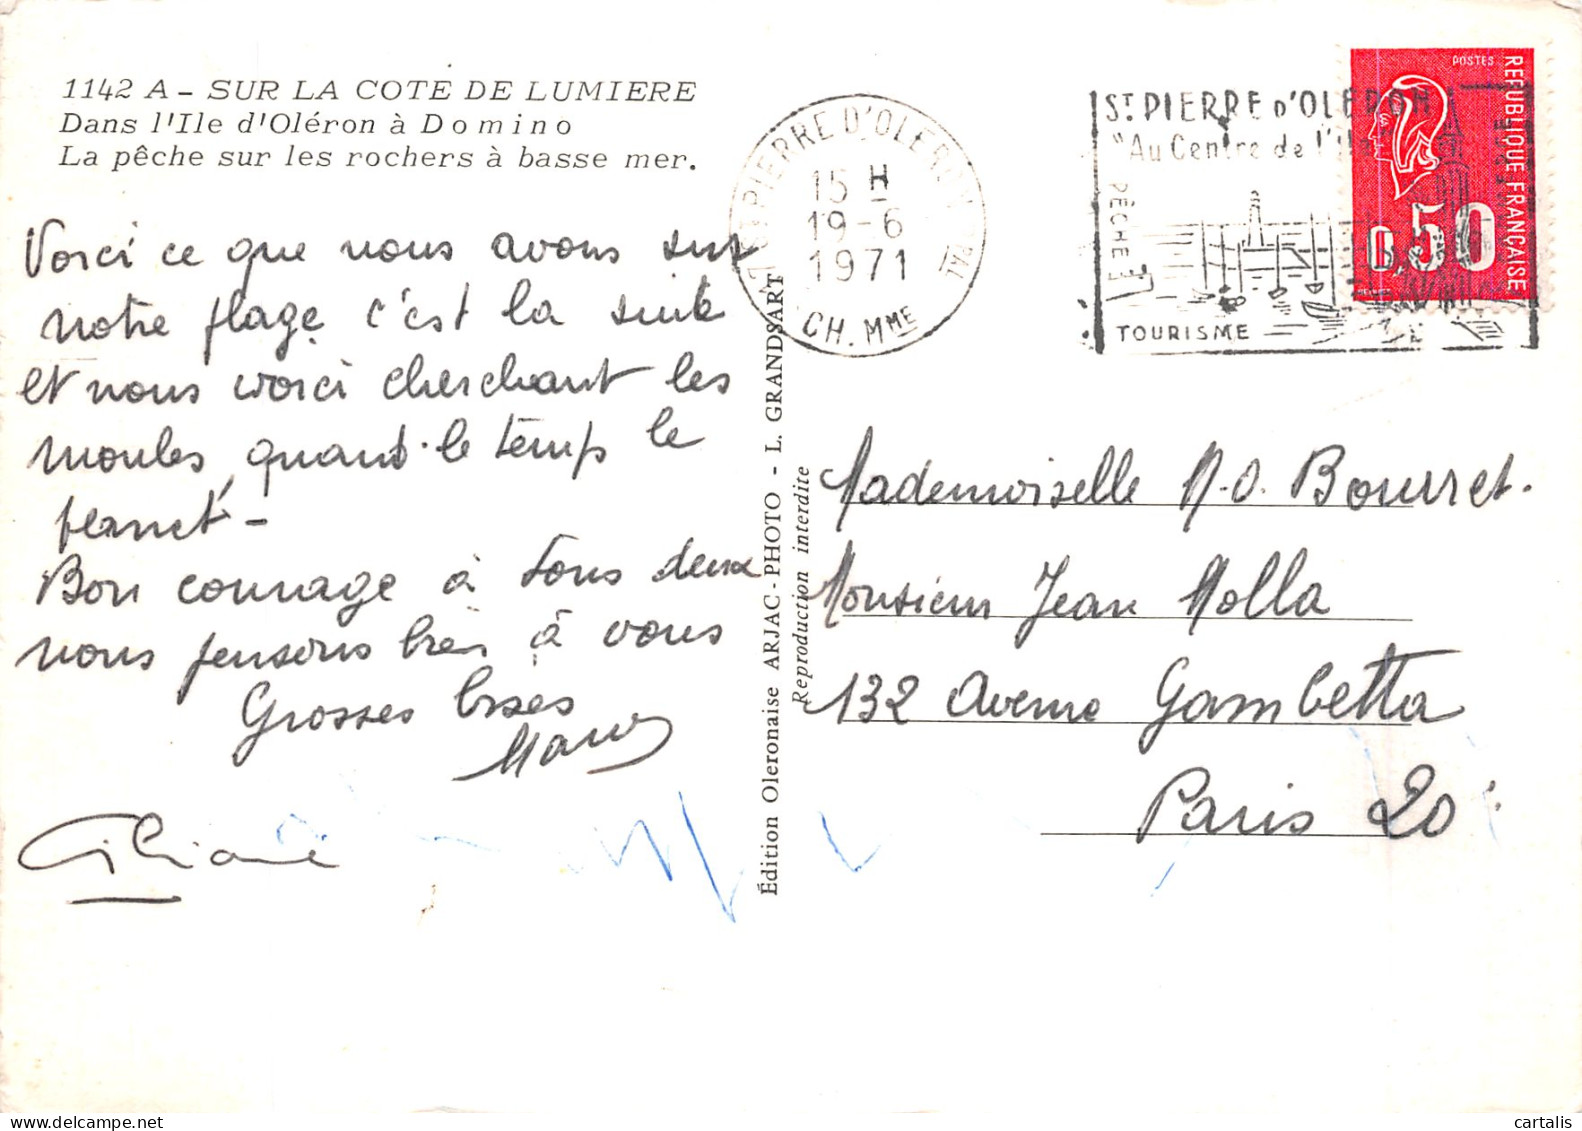 1142 A - SUR LA COTE DE LUMIERE
Dans l'Ile d'Oléron à Domino
La pêche sur les rochers à basse mer.
Voici ce que nous avons sur
notre plage c'est la suite
et nous voici cherchant les
moules, quand le temps le
permet -
Bon courage à tous deux
nous pensons bien à vous
Grosses bises
Édition Oleronaise ARJAC-PHOTO - L. GRANDSART
Reproduction interdite
PIERRE D'OLERON
15 H
19-6
1971
CH. MME
ST PIERRE D'OLERON
"Au Centre de l'Ile"
PÊCHE
TOURISME
POSTES
REPUBLIQUE FRANÇAISE
0,50
Mademoiselle M.O. Bourret.
Monsieur Jean Molla
132 Avenue Gambetta
Paris 20
cartalis